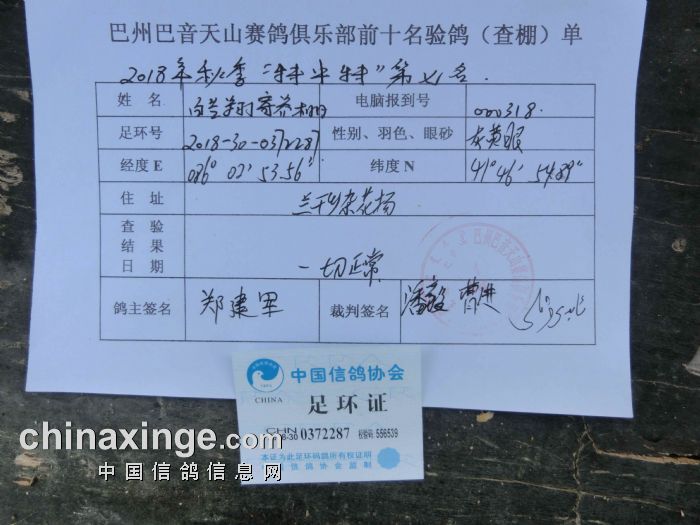 巴州巴音天山赛鸽俱乐部前十名验鸽（查棚）单
2018年秋季"特比特"第七名
姓 名 电脑报到号 000318
足环号 2018-30-0372287 性别、羽色、眼砂 灰黄眼
经度E 086° 02' 53.56" 纬度N 41° 46' 54.89"
住 址
查 验
结 果
日 期 一切正常
鸽主签名 郑建军 裁判签名 潘毅 曹进
中国信鸽协会
CHINA
足环证
CHN 0372287 校验码 556539
本证为此足环码鸽所有权证明
信鸽协会监制
chinaxinge.com
中国信鸽信息网